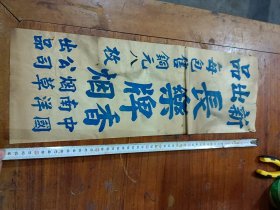 新出品
長樂牌香烟
每包售銅元八枚
中國南洋烟草公司出品